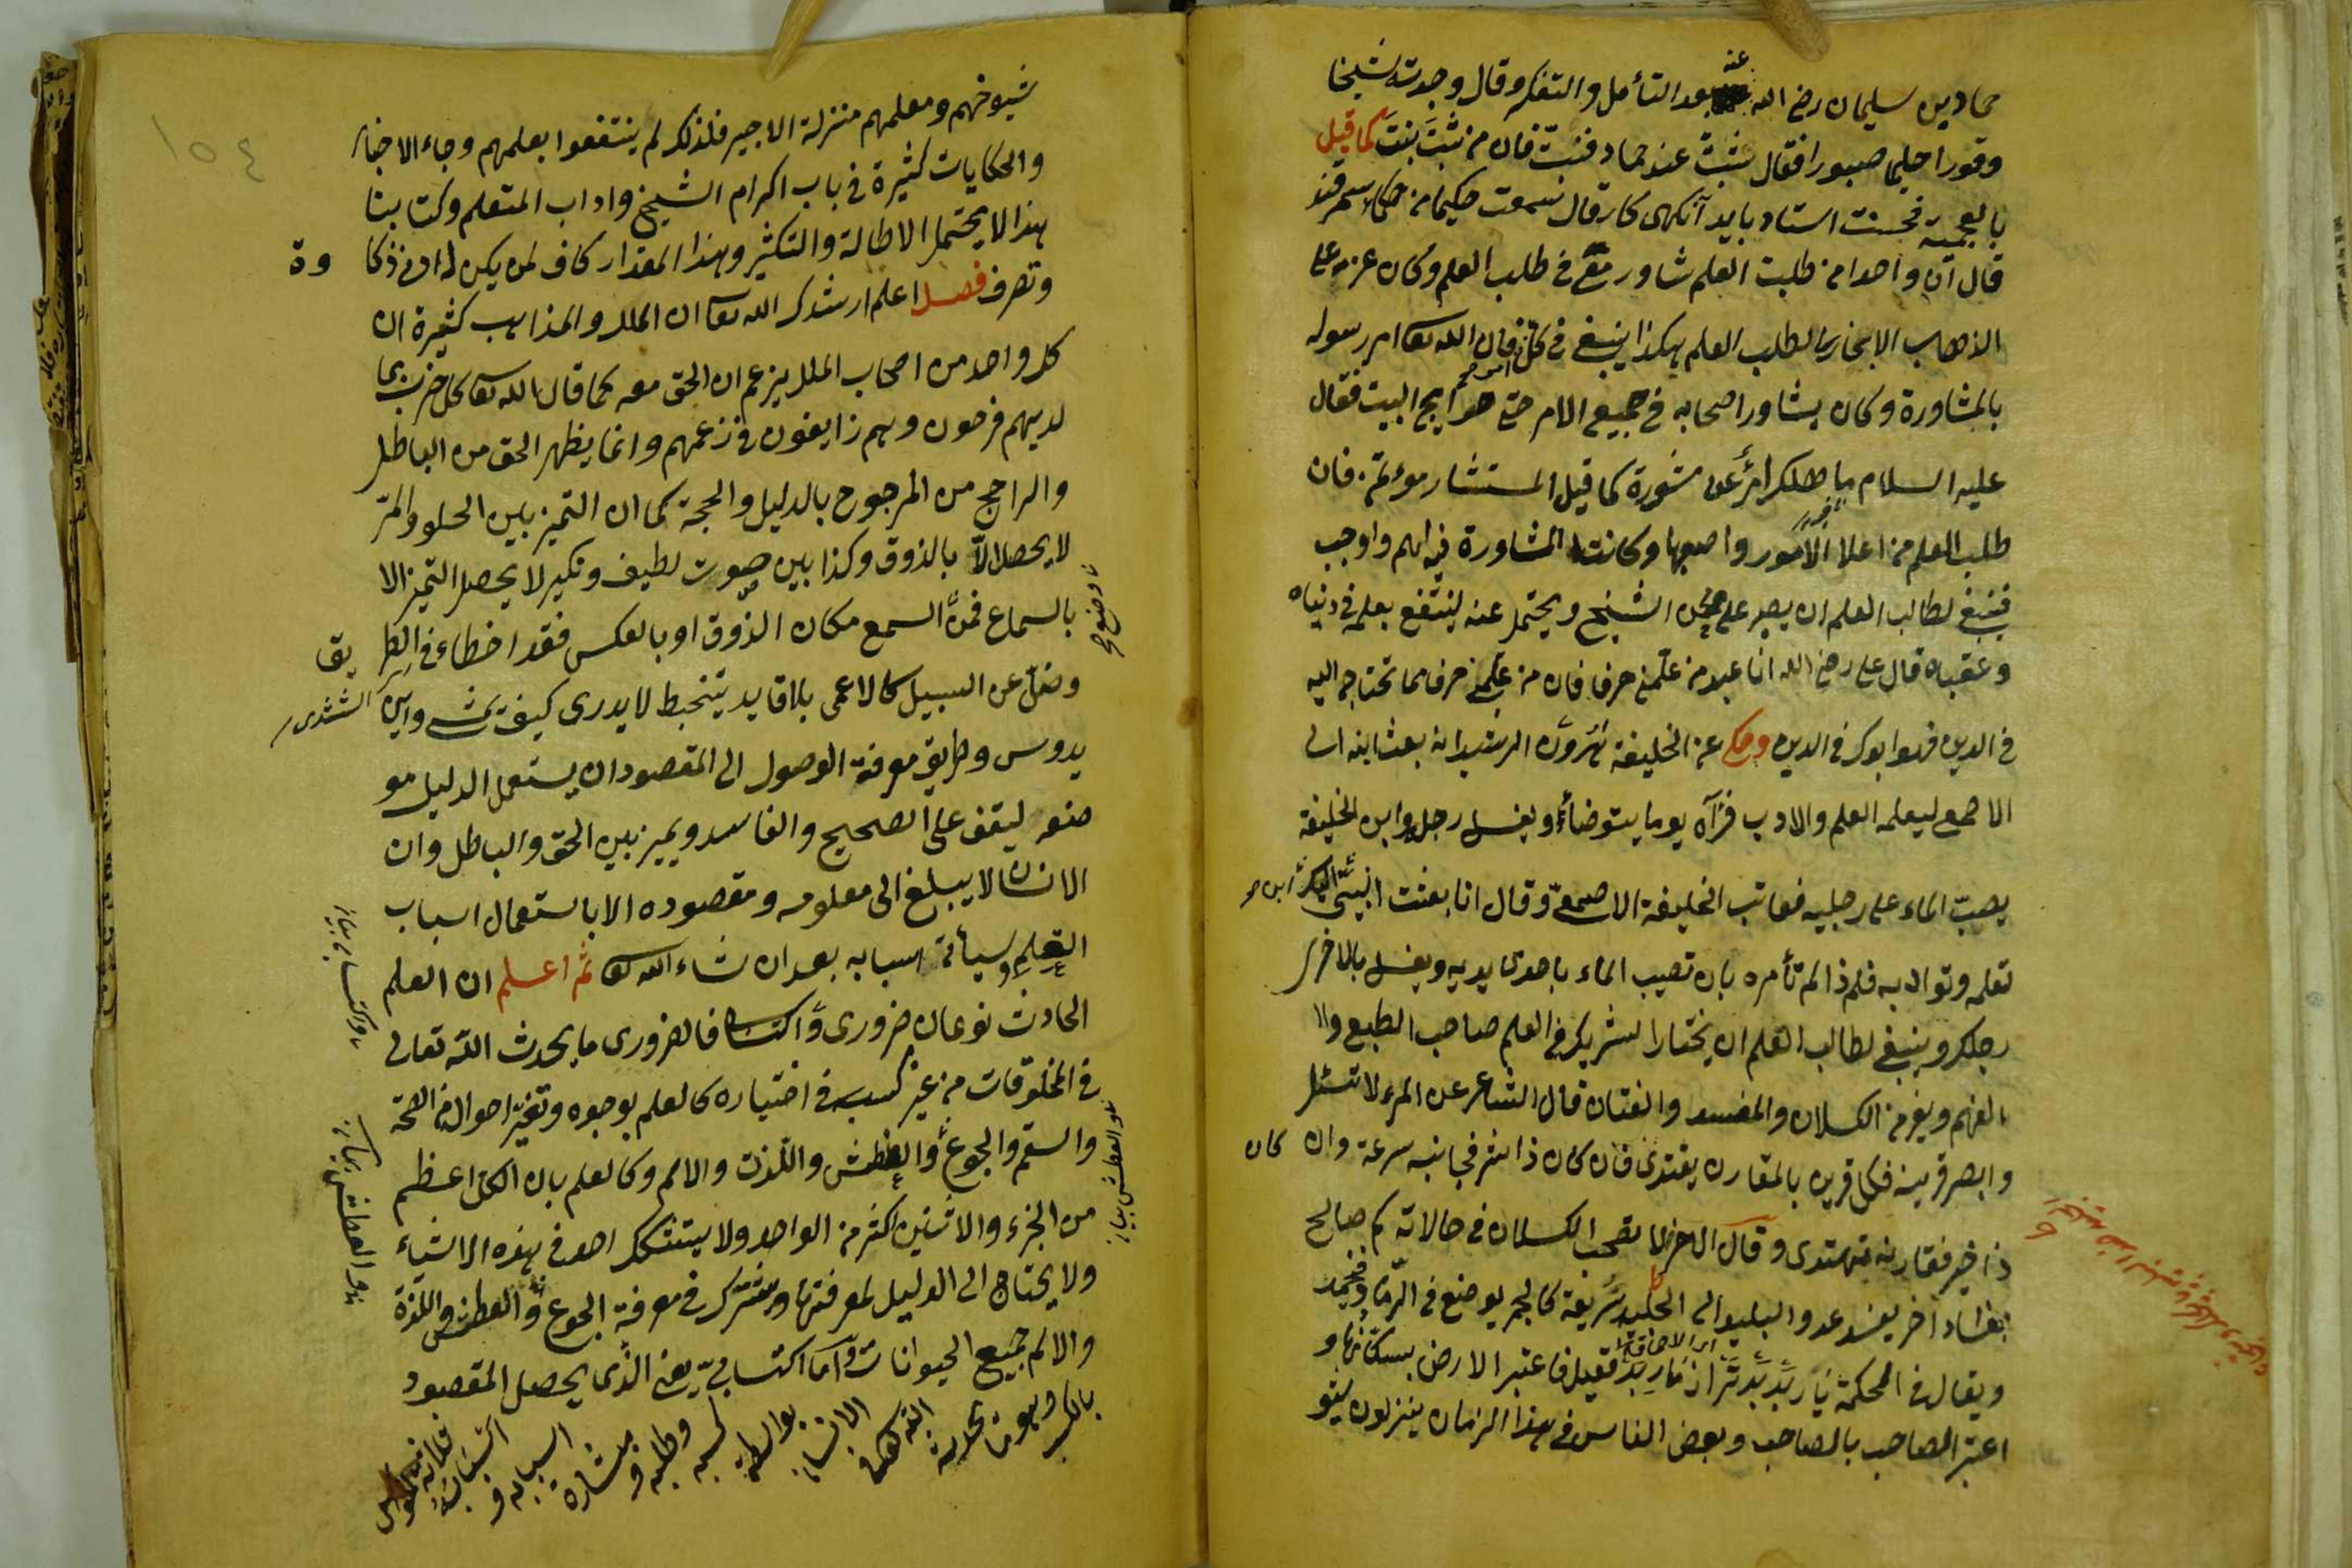 حمادبن سليمان رضى الله عنه بعد التأمل والتفكر وقال وجدته شيخا
وقورا حليما صبورا فقال نثبت عند حماد فنبت فان من ثبت نبت كما قيل
بالعجمية استاد بايد آنكهى كار قال سمعت حكيما من حكماء سمرقند
قال ان واحدا من طلبت العلم شاور معى فى طلب العلم وكان عزم على
الذهاب الى بخارى لطلب العلم هكذا ينبغى فى كل امر فان الله تعا امر رسوله
بالمشاورة وكان يشاور اصحابه فى جميع الامر حتى حوايج البيت فقال
عليه السلام ما هلك امرأ عن مشورة كما قيل المستشار مؤتمن فان
طلب العلم من اعلا الامور واصعبها وكانت المشاورة فيه اهم واوجب
فينبغى لطالب العلم ان يصبر على محن الشيخ ويحتمل عنه لينتفع بعلمه فى دنياه
وعقباه قال على رضى الله انا عبد من علمنى حرفا فان من علمنى حرفا مما تحتاج اليه
فى الدين فهو ابوك فى الدين وحكى عن الخليفة هرون الرشيد انه بعث ابنه الى
الاصمع ليعلمه العلم والادب فرآه يوما يتوضأ ويغسل رجله وابن الخليفة
يصب الماء على رجليه فعاتب الخليفة الاصمعى وقال انا بعثت ابنى اليك
تعلمه وتوادبه فلم ذا لم تأمره بان تصيب الماء باحدى يديه ويغسل بالاخرى
رجلك وينبغى لطالب العلم ان يختار الشريك فى العلم صاحب الطبع وا
الفهم ويفر من الكسلان والمفسد والفتان قال الشاعر عن المرء لا تسئل
وابصر قرينه فكل قرين بالمقارن يقتدى فان كان ذا شر فجانبه سرعة وان كان
ذا خير فقارنه تهتدى وقال الاخر لا تصحب الكسلان فى حالاته كم صالح
بفساد اخر يفسد عدو البليد الى الجليد سريعة كالجمر يوضع فى الرماد فيخمد
ويقال فى الحكمة يار بد بدتر از مار بد فقيل فاعتبر الارض بسكانها و
اعتبر الصاحب بالصاحب وبعض الناس فى هذا الزمان ينزلون
١٥٤
شيوخهم ومعلمهم منزلة الاجير فلذلك لم ينتفعوا بعلمهم وجاء الاخبار
والحكايات كثيرة فى باب اكرام الشيخ واداب المتعلم وكتابنا
هذا لا يحتمل الاطالة والتكثير وهذا المقدار كاف لمن يكن له ادنى ذكا وة
وتصرف فصل اعلم ارشدك الله تعا ان الملل والمذاهب كثيرة ان
كل واحد من اصحاب الملل يزعم ان الحق معه كما قال الله تعا كل حزب بما
لديهم فرحون وهم زايغون فى زعمهم وانما يظهر الحق من الباطل
والراجح من المرجوح بالدليل والحجة كما ان التميز بين الحلو والمر
لا يحصل الا بالذوق وكذا بين صوت لطيف ونكير لا يحصل التميز الا
بالسماع فمن السمع مكان الذوق او بالعكس فقد اخطاء فى الطر يق
وضل عن السبيل كالاعمى بلا قايد يتخبط لا يدرى كيف يمشى واين
يدوس وطريق معرفة الوصول الى المقصود ان يستعمل الدليل مو
ضعه ليقف على الصحيح والفاسد ويميز بين الحق والباطل وان
الانسان لا يبلغ الى معلومه ومقصوده الا باستعمال اسباب
التعلم وسيأتى اسبابه بعد ان شاء الله تعا ثم اعلم ان العلم
الحادث نوعان ضرورى واكتسابى فالضرورى ما يحدث الله تعالى
فى المخلوقات من غير كسبه فى اختياره كالعلم بوجوه وتغير احواله من الصحة
والسقم والجوع والعطش واللذت والالم وكالعلم بان الكل اعظم
من الجزء والاثنين اكثر من الواحد ولا يتشكك احد فى هذه الاشياء
ولا يحتاج الى الدليل لمعرفتها ويشترك فى معرفة الجوع والعطش واللذة
والالم جميع الحيوانات واما اكتسابى يعنى الذى يحصل المقصود
بالكسب وهو ما يحدثه الله تعالى الانسان بواسطة كسبه وطلبه و مباشرة اسبابه و